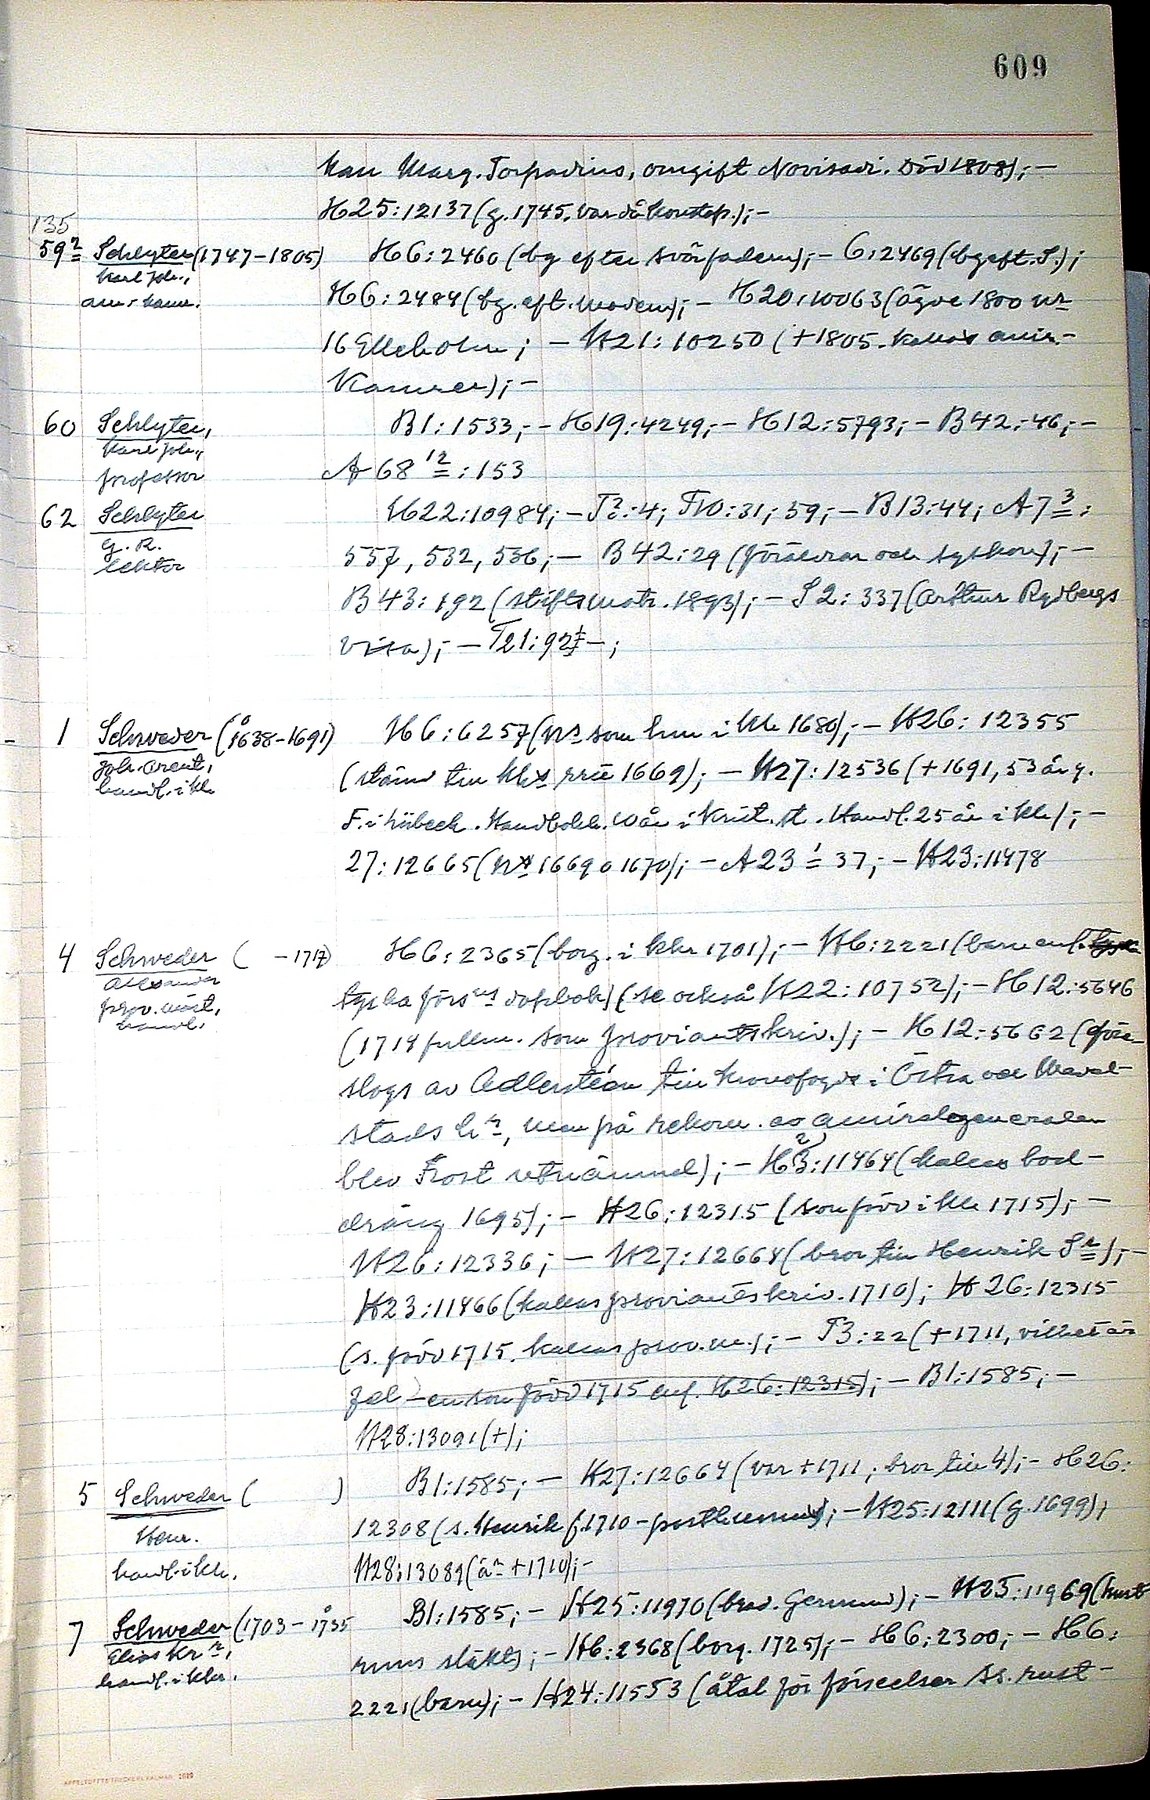 609
Marg. Torpadius, omgift Novisadi. Död 1808);-
H25:12137 (g. 1745. var då konstap.);-
135
59² Schlyter (1747-1805) H6:2460 (bg efter svärfadern);- 6:2469 (bg eft. S.);
Karl Joh.,
am:kamr. H6:2484 (bg. eft. modern);- H20:10063 (ägde 1800 nr
16 Elleholm; - H21:10250 (+1805. kallas amir.-
Kamrer);-
60 Schlyter, B1:1533;- H19:4249;- H12:5793;- B42:46;-
Karl Joh.,
professor A 68 12:153
62 Schlyter H22:10984;- T2:4; T10:31; 59;- B13:44; A7 3:
g. R.
lektor 557, 532, 536;- B42:29 (föräldrar och syskon);-
B43:192 (stiftsmatr. 1893);- S2:337 (Arthur Rydbergs
visa);- T21:92 -;
1 Schweder (1638-1691) H6:6257 (nr som hm i Kh 1680);- H26:12355
Joh. Arent,
handl. i kh (stämd till 1669);- H27:12536 (+1691, 53 år g.
F. i Lübeck. Handbokh. 10 år i Krist. st. Handl. 25 år i kh);-
27:12665 (1669 o 1670);- A23 1 37;- H23:11478
4 Schweder ( -1717) H6:2365 (borg. i khr 1701);- H6:2221 (barn enl.
Alexander
prov. mäst,
handl. tyska förs:s dopbok) (se också H22:10752);- H12:5646
(1714 fullm. som proviantskriv.);- H12:5662 (före-
slogs av Adlersteen till kronofogde i Östra och Medel-
stads hr, men på rekom. av amiralsgeneralen
blev Frost utnämnd);- H23:11464 (kallas bod-
dräng 1695);- H26:12315 (son född i kh 1715);-
H26:12336;- H27:12664 (bror till Henrik Sr);-
H23:11466 (kallas proviantskriv. 1710); H26:12315
(s. född 1715. kallas prov.m.);- T3:22 (+1711, vilket är
fel - en son född 1715 enl. H26:12315);- B1:1585;-
H28:13091 (+);
5 Schweder ( ) B1:1585;- H27:12664 (var +1711; bror till 4);- H26:
Henr.
handl. i kh. 12308 (s. Henrik f. 1710 - posthumus);- H25:12111 (g. 1699);
H28:13089 (är +1710);-
7 Schweder (1703-1735 B1:1585;- H25:11970 (brod. Germund);- H25:11969 (hust
Elias Kr:n,
handl. i khr. runs släkt);- H6:2368 (borg. 1725);- H6:2300;- H6:
2221 (barn);- H24:11553 (åtal för förseelser ss. rust-